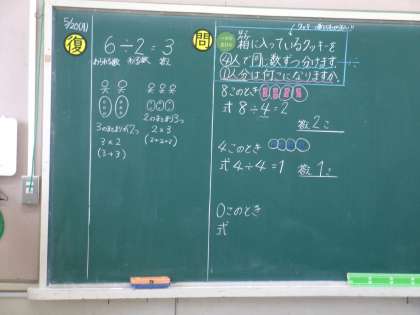 5/20(月)
復
6÷2=3
わられる数 わる数 答え
3のまとまりが2つ
3×2
(3+3)
2のまとまり3つ
2×3
(2+2+2)
問
箱に入っているクッキーを
4人で同じ数ずつ分けます
1人分は何こになりますか。
8このとき
式 8÷4=2
答え 2こ
4このとき
式 4÷4=1
答え 1こ
0このとき
式